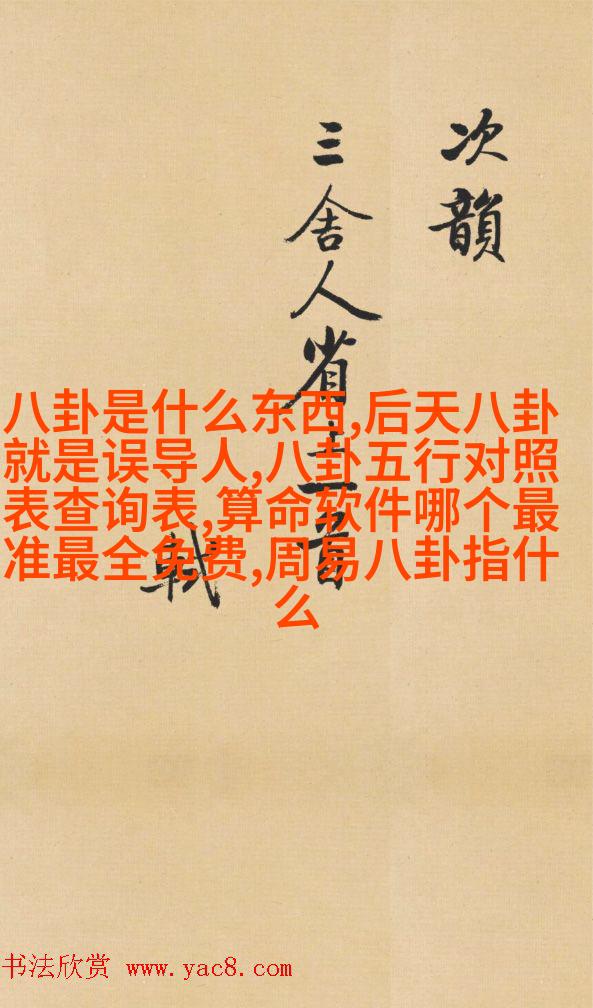 次韻
三舍人省上
軾
八卦是什么东西,后天八卦
就是误导人,八卦五行对照
表查询表,算命软件哪个最
准最全免费,周易八卦指什
么
书法欣赏 www.yac8.com